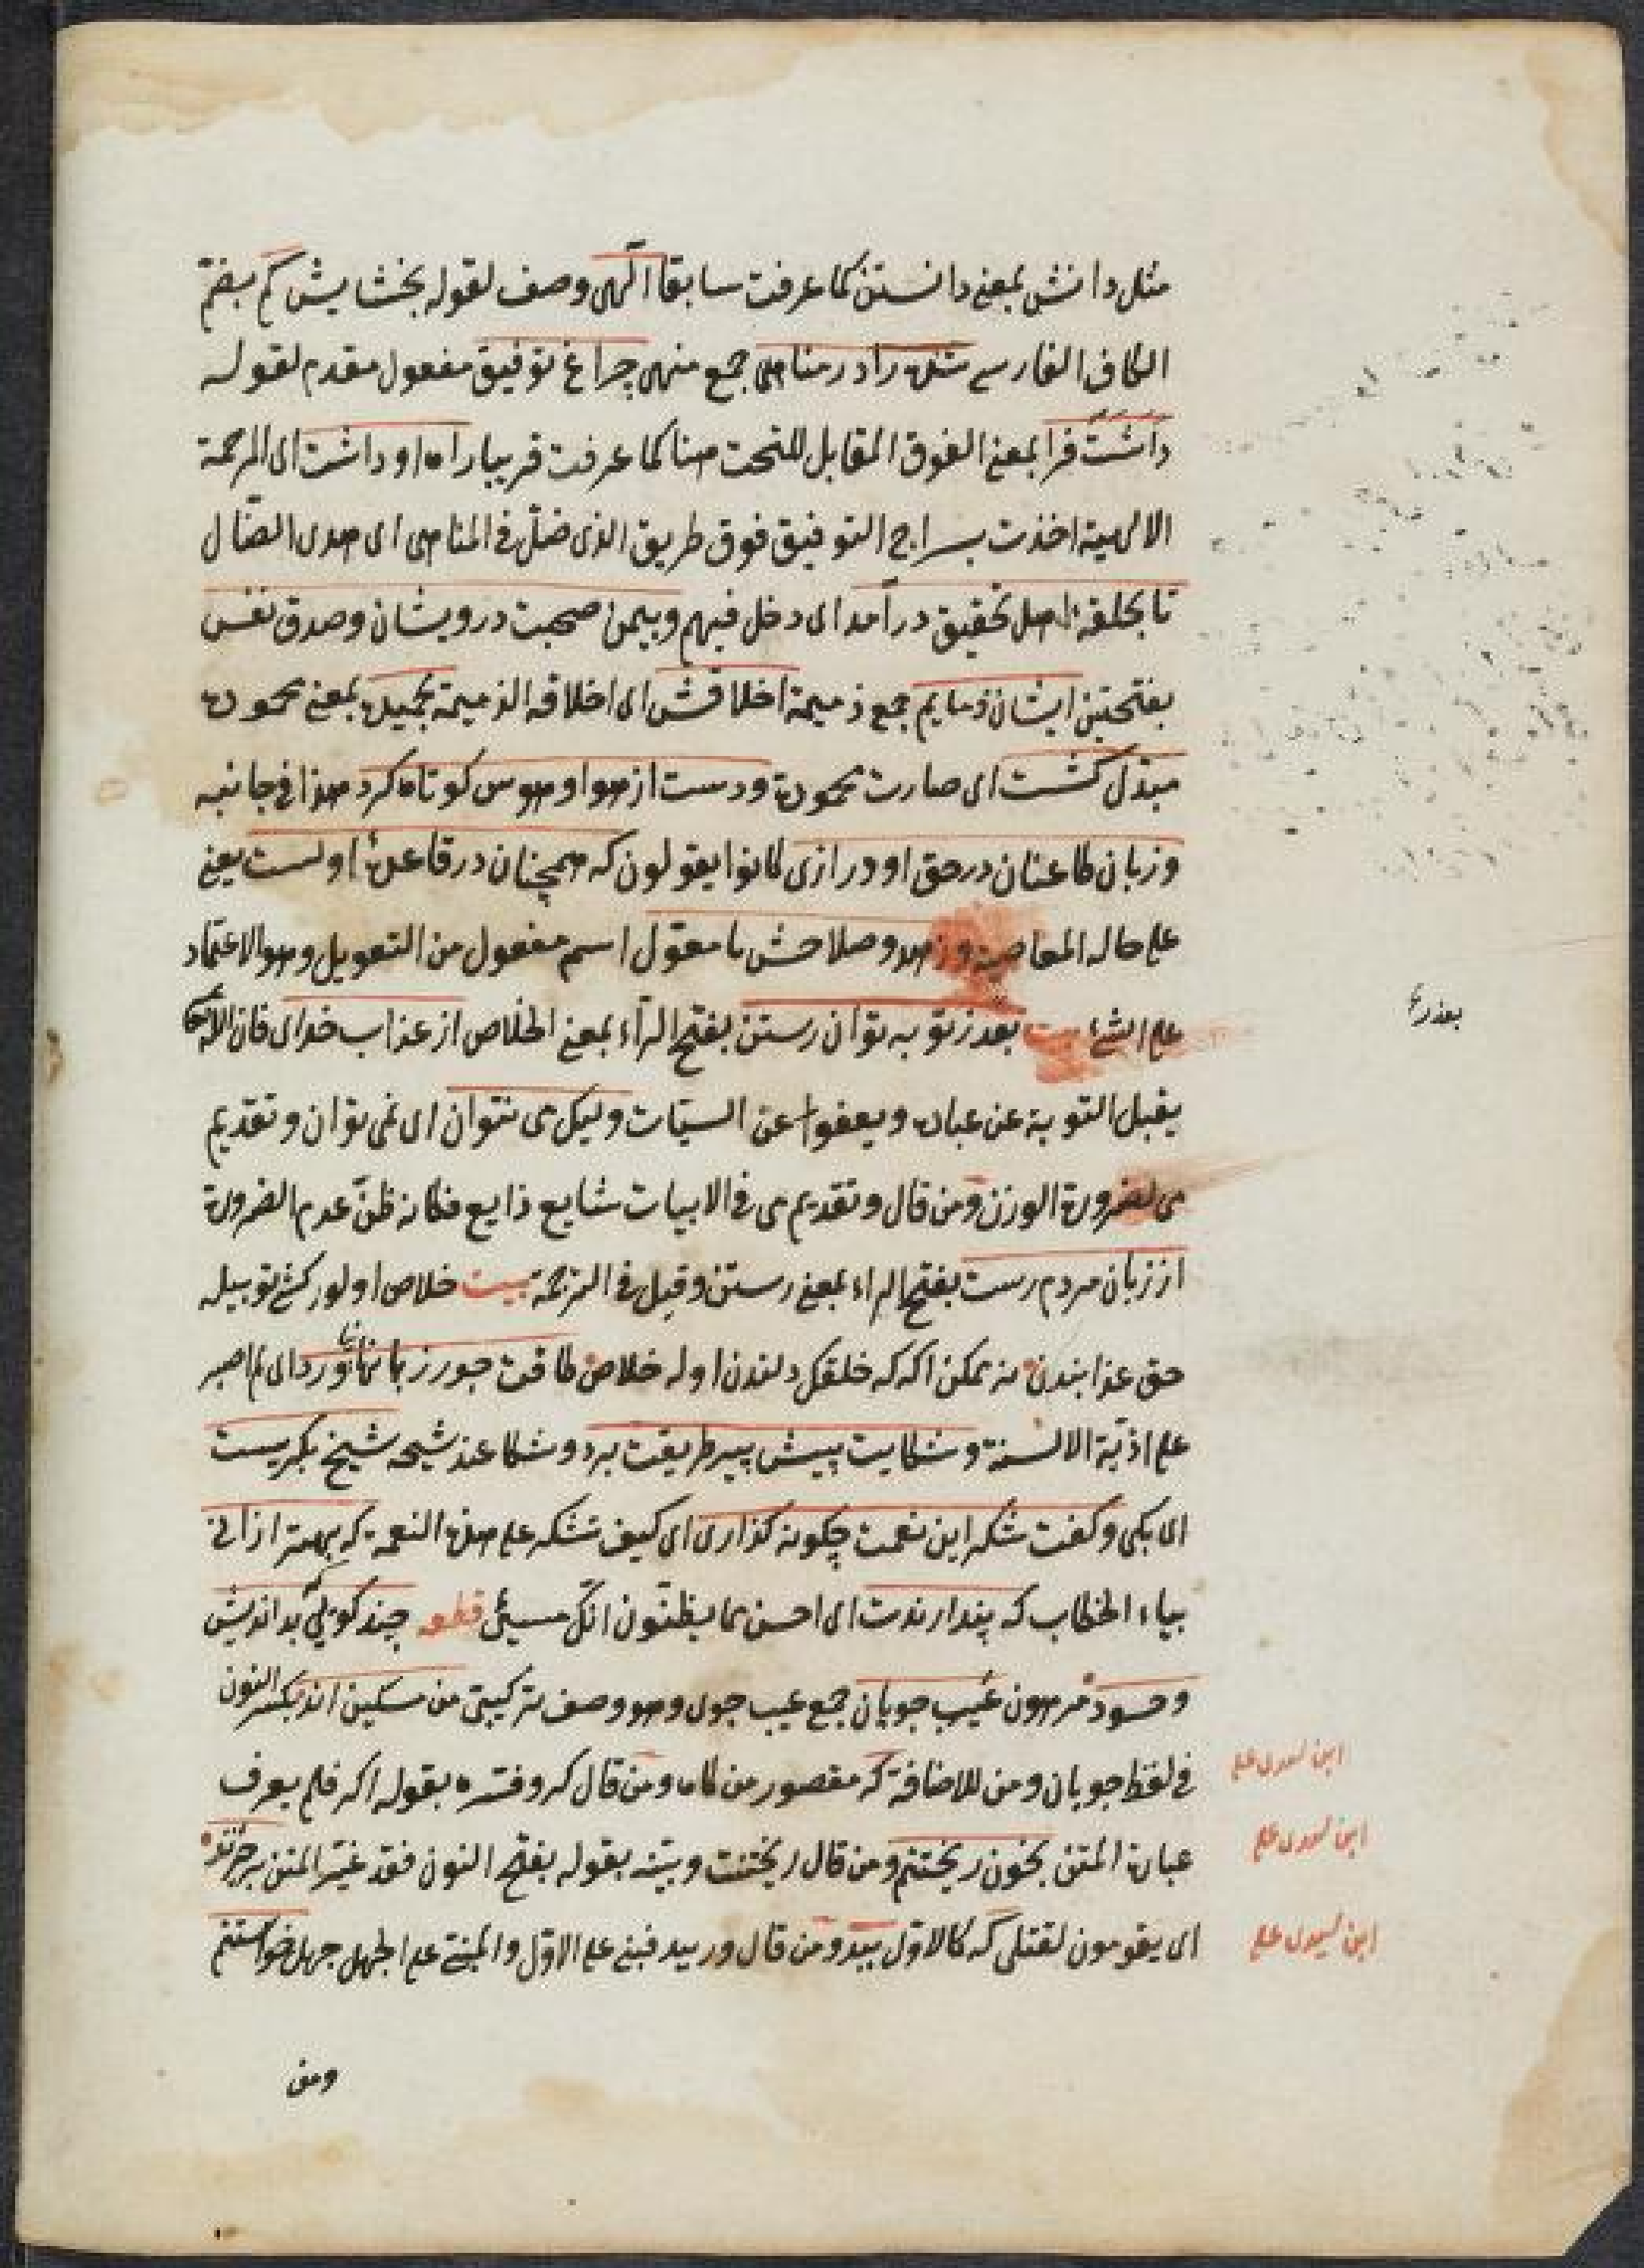 مثل دانش بمعنى دانستن كما عرفت سابقا الٓهى وصف لقوله بخشايش كم بضم
الكاف الفارسى شده را در مناهى جمع منهى چراغ توفيق مفعول مقدم لقوله
داشت فرا بمعنى الفوق المقابل للتحت هنا كما عرفت قريبا راه او داشت اى الرحمة
الالهية اخذت بسراج التوفيق فوق طريق الذى ضلّ فى المناهى اى هدى الضّال
تا بحلقهٔ اهل تحقيق درآمد اى دخل فيهم وبيمن صحبت درويشان وصدق نفس
بفتحتين ايشان ذمايم جمع ذميمة اخلاقش اى اخلاقه الذميمة بحميده بمعنى محموده
مبدّل كشت اى صارت محمودة ودست از هوا وهوس كوتاه كرد هذا فى جانبه
وزبان طاعنان در حق او درازى كانوا يقولون كه همچنان در قاعدهٔ اولست يعنى
على حاله المعاصى وزهد وصلاحش نا معوّل اسم مفعول من التعويل وهو الاعتماد
على الشئ بيت بعذر توبه توان رستن بفتح الرآء بمعنى الخلاص از عذاب خداى فان الله تعالى
يقبل التوبة عن عباده ويعفوا عن السيّات وليك مى نتوان اى نمى توان وتقديم
مى لضرورة الوزن ومن قال وتقديم مى فى الابيات شايع ذايع فكانه ظنّ عدم الضرورة
از زبان مردم رست بفتح الراء بمعنى رستن وقيل فى الترجمة بيت خلاص اولور كشى توبيله
حق عذابندن نه ممكن اكه كه خلقك دلندن اوله خلاص طاقت جور زبانها نياورد اى لم اصبر
على اذيّة الالسنة وشكايت پيش پير طريقت برد وشكا عند شيخه شيخ بكريست
اى بكى وكفت شكر اين نعمت چكونه كذارى اى كيف تشكر على هذه النعمة كه بهتر از انى
بياء الخطاب كه پندارندت اى احسن مما يظنّون انك مسيئ قطعه چند كويى كه بد انديش
وحسود مرهون عيب جويان جمع عيب جوى وهو وصف تركيبى من مسكين اند بكسر النون
فى لفظ جويان ومن للاضافة كه مقصور من كاه ومن قال كر وفسّره بقوله اكر فلم يعرف
عبارة المتن بخون ريختنم ومن قال ريختنت وبيّنه بقوله بفتح النون فقد غيّر المتن برخيزند
اى يقومون لقتلى كه كالاول ببد ومن قال ور ببد فبنى على الاوّل والمبنى على الجهل جهل خواستنم
ومن
بعذر نخ
ابن سيدى على
ابن سيدى على
ابن سيدى على